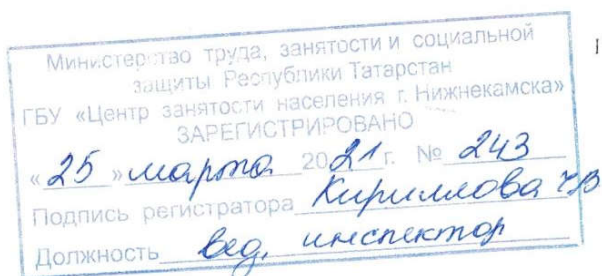 Министерство труда, занятости и социальной
защиты Республики Татарстан
ГБУ «Центр занятости населения г. Нижнекамска»
ЗАРЕГИСТРИРОВАНО
«25» марта 2021 г. № 243
Подпись регистратора Кириллова
Должность вед. инспектор